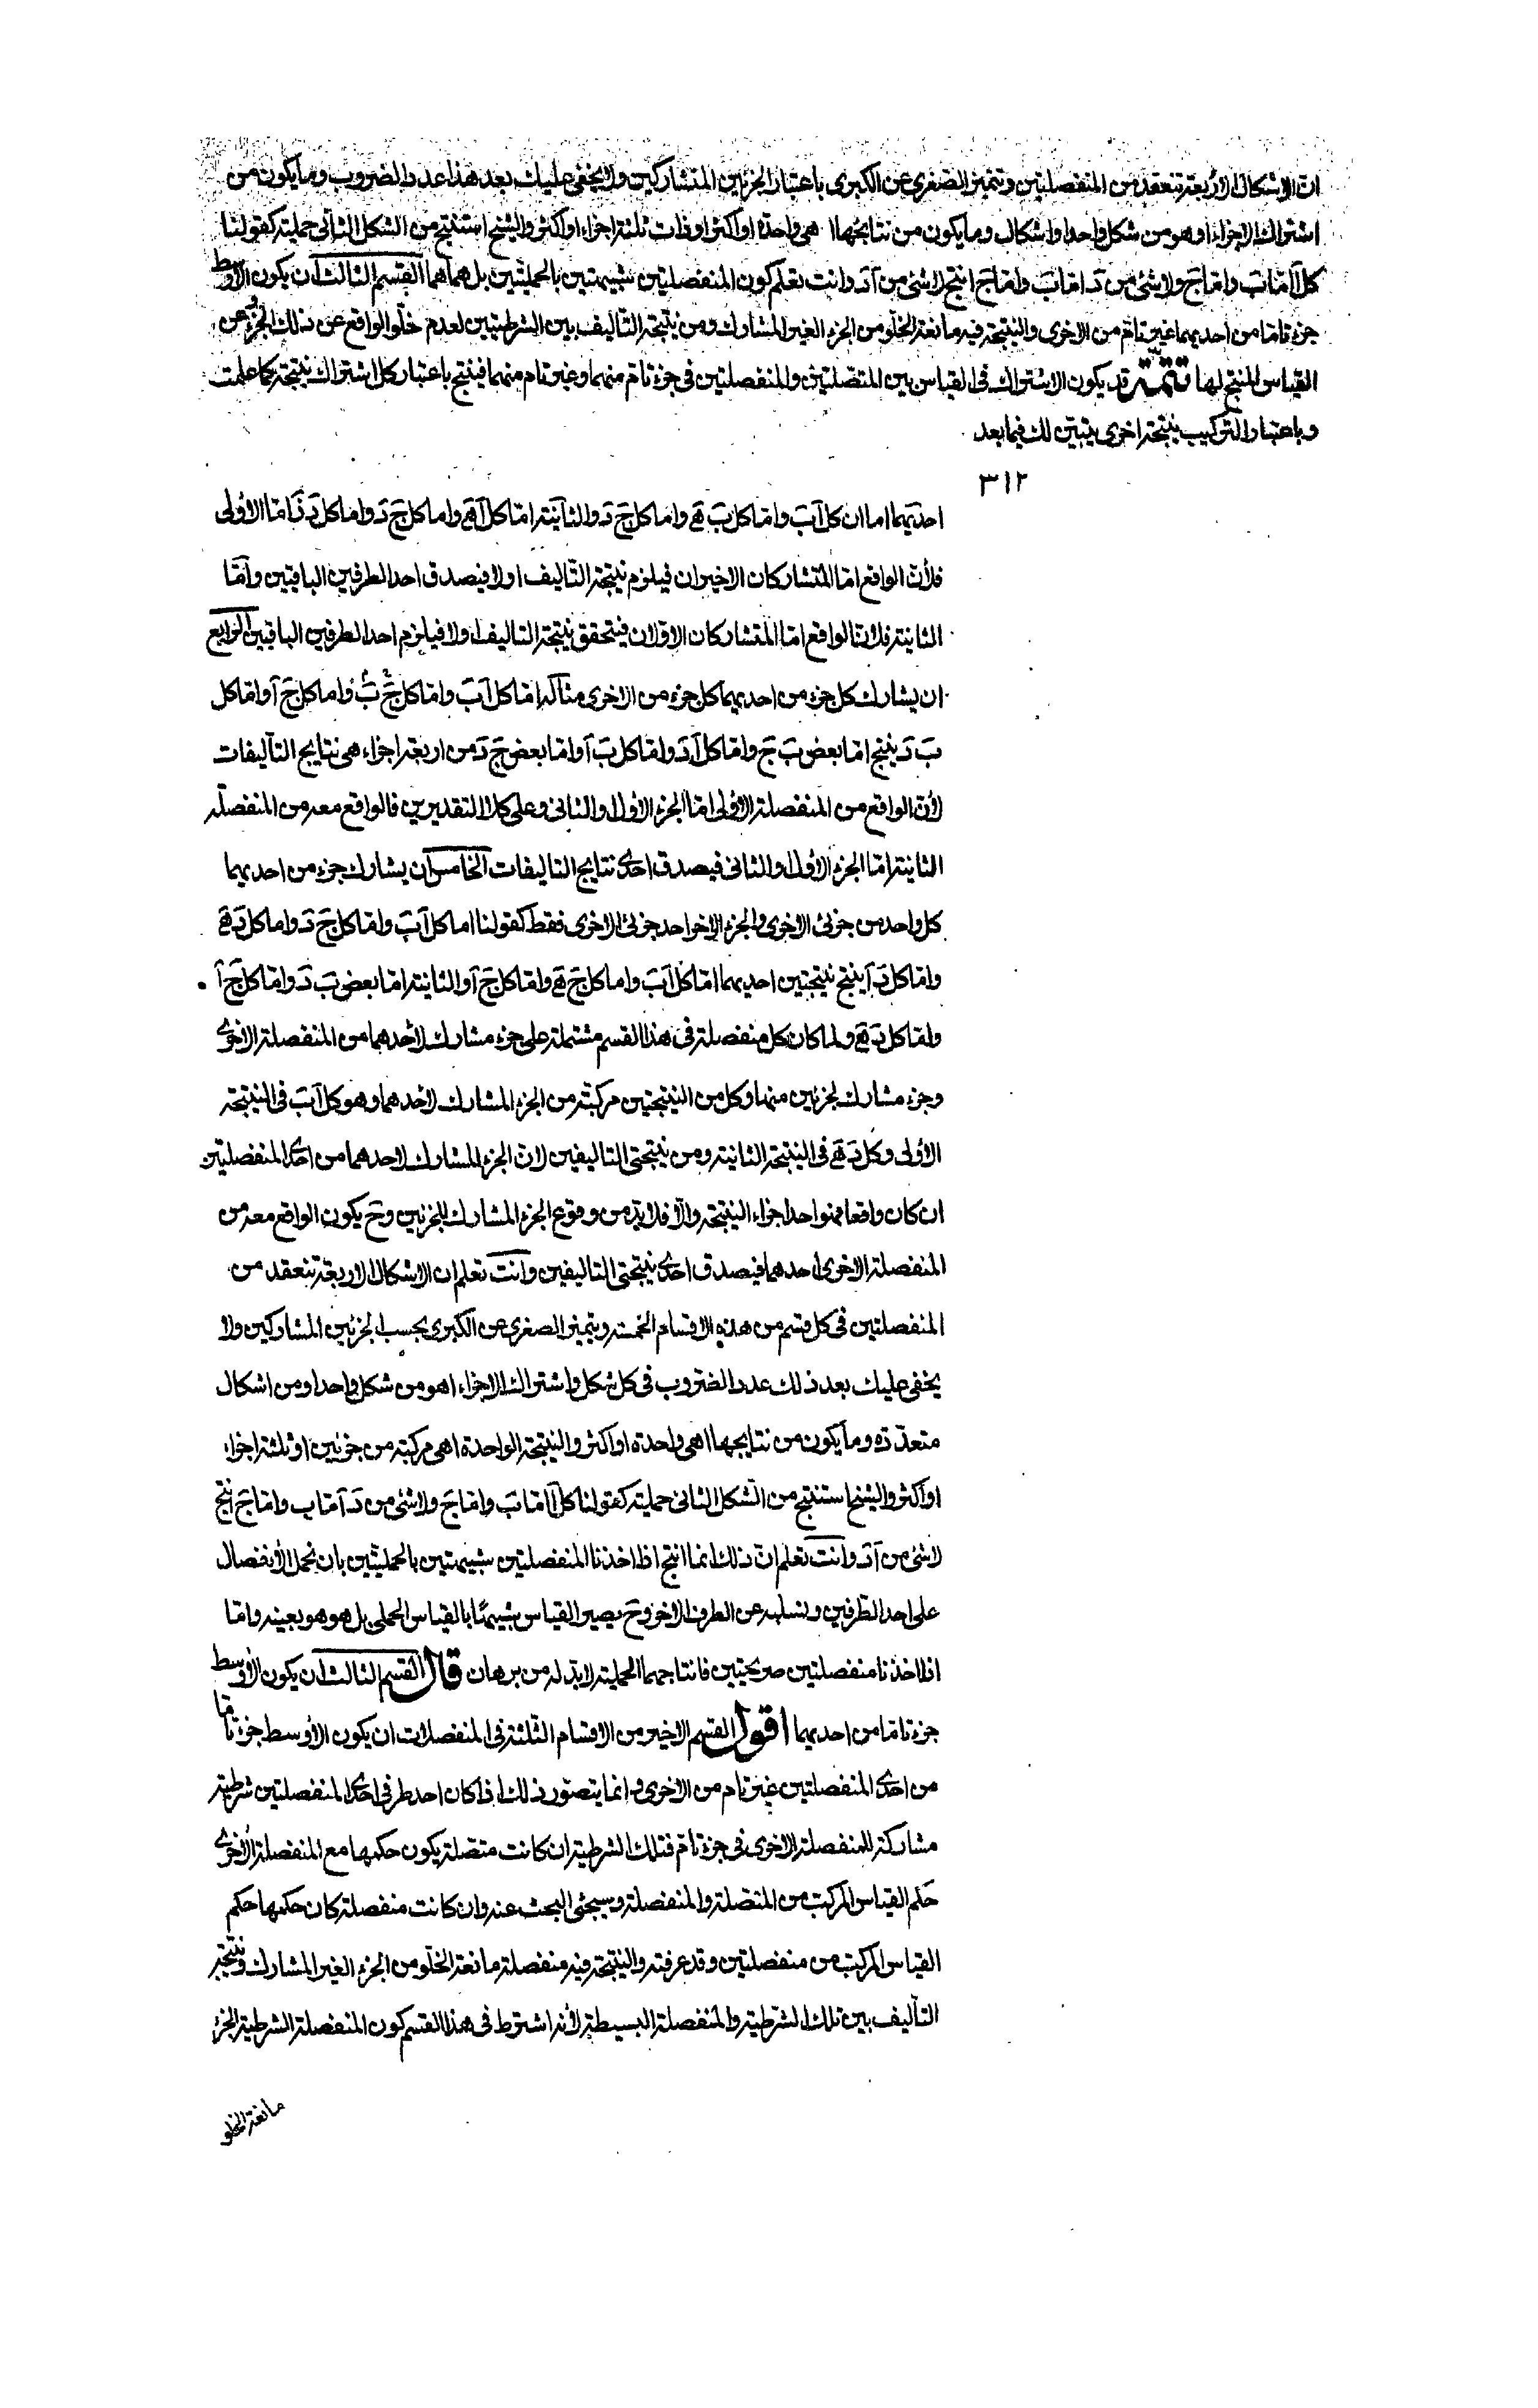 ان الاشكال الاربعة تنعقد من المنفصلتين وتتميز الصغرى عن الكبرى باعتبار الجزئين المتشاركين ولا يخفى عليك بعد هذا عدد الضروب وما يكون من
اشتراك الاجزاء اوهو من شكل واحد او اشكال وما يكون من نتايجها اهى واحدة او اكثر او ذات ثلثة اجزاء او اكثر والشيخ استنتج من الشكل الثانى حملية كقولنا
كل آ امّا بَ وامّا جَ ولا شئ من دَ امّا بَ وامّا جَ انتج لا شئ من آ دَ وانت تعلم كون المنفصلتين شبيهتين بالحمليتين بل هما هما القسم الثالث ان يكون الاوسط
جزءً تامّا من احديهما غير تام من الاخرى والنتيجة فيه مانعة الخلو من الجزء الغير المشارك ومن نتيجة التأليف بين الشرطيتين لعدم خلّو الواقع عن ذلك الجزء وعن
القياس المنتج لها تتمة قد يكون الاشتراك فى القياس بين المتصلتين والمنفصلتين فى جزء تام منهما وغير تام منهما فينتج باعتبار كل اشتراك نتيجة كما علمت
وباعتبار التركيب نتيجة اخرى يتبيّن لك فيما بعد
٣١٢
احديهما اما ان كل آ بَ وامّا كل بَ هَ واما كل جَ دَ والثانية امّا كل آ هَ واما كل جَ دَ واما كل دَ زَ امّا الاولى
فلأن الواقع امّا المتشاركان الاخيران فيلزم نتيجة التأليف اولا فيصدق احد الطرفين الباقيين وامّا
الثانية فلان الواقع امّا المتشاركان الاوّلان فيتحقق نتيجة التاليف او لا فيلزم احد الطرفين الباقيين الرابع
ان يشارك كل جزء من احديهما كل جزء من الاخرى مثاله امّا كل آ بَ وامّا كل جَ بَ واما كل جَ آ وامّا كل
بَ دَ ينتج امّا بعض بَ جَ وامّا كل آ دَ وامّا كل بَ آ وامّا بعض جَ دَ من اربعة اجزاء هى نتايج التأليفات
لان الواقع من المنفصلة الاولى امّا الجزء الاول او الثانى وعلى كلا التقديرين فالواقع معه من المنفصلة
الثانية امّا الجزء الاول او الثانى فيصدق احدى نتايج التاليفات الخامس ان يشارك جزء من احديهما
كل واحد من جزئى الاخرى والجزء الاخر احد جزئى الاخرى فقط كقولنا اما كل آ بَ وامّا كل جَ دَ واما كل دَ هَ
وامّا كل دَ آ ينتج نتيجتين احديهما امّا كل آ بَ واما كل جَ هَ وامّا كل جَ آ والثانية امّا بعض بَ دَ وامّا كل جَ آ
وامّا كل دَ هَ ولما كان كل منفصلة فى هذا القسم مشتملة على جزء مشارك لاحدهما من المنفصلة الاخرى
وجزء مشارك لجزئين منها وكل من النتيجتين مركبة من الجزء المشارك لاحدهما وهو كل آ بَ فى النتيجة
الاولى وكل دَ هَ فى النتيجة الثانية ومن نتيجتى التاليفين لان الجزء المشارك لاحدهما من احدى المنفصلتين
ان كان واقعا فهو احد اجزاء النتيجة والّا فلا بدّ من وقوع الجزء المشارك للجزئين وح يكون الواقع معه من
المنفصلة الاخرى احدهما فيصدق احدى نتيجتى التاليفين وانت تعلم ان الاشكال الاربعة تنعقد من
المنفصلتين فى كل قسم من هذه الاقسام الخمسة ويتميز الصغرى عن الكبرى بحسب الجزئين المتشاركين ولا
يخفى عليك بعد ذلك عدد الضروب فى كل شكل واشتراك الاجزاء اهو من شكل واحد او من اشكال
متعدّدة وما يكون من نتايجها اهى واحدة او اكثر والنتيجة الواحدة اهى مركبة من جزئين او ثلثة اجزاء
او اكثر والشيخ استنتج من الشكل الثانى حملية كقولنا كل آ امّا بَ وامّا جَ ولا شئ من دَ امّا ب وامّا جَ ينتج
لا شئ من آ دَ وانت تعلم ان ذلك انما انتج اذا اخذنا المنفصلتين شبيهتين بالحمليتين بان نحمل الانفصال
على احد الطرفين ونسلبه عن الطرف الاخر وح يصير القياس شبيهًا بالقياس الحملى بل هو هو بعينه وامّا
اذا اخذنا منفصلتين صريحتين فانتاجهما الحملية لا بدّ له من برهان قال القسم الثالث ان يكون الاوسط
جزءً تامّا من احديهما اقول القسم الاخير من الاقسام الثلثة فى المنفصلات ان يكون الاوسط جزءً تامّا
من احدى المنفصلتين غير تام من الاخرى وانما يتصوّر ذلك اذا كان احد طرفى احدى المنفصلتين شرطية
مشاركة للمنفصلة الاخرى فى جزء تام فتلك الشرطية ان كانت متصلة يكون حكمها مع المنفصلة الاخرى
حكم القياس المركب من المتصلة والمنفصلة وسيجئ البحث عنه وان كانت منفصلة كان حكمها حكم
القياس المركب من منفصلتين وقد عرفته والنتيجة فيه منفصلة مانعة الخلّو من الجزء الغير المشارك ونتيجة
التأليف بين تلك الشرطية والمنفصلة البسيطة لانه اشترط فى هذا القسم كون المنفصلة الشرطية الجزء
مانعة الخلو